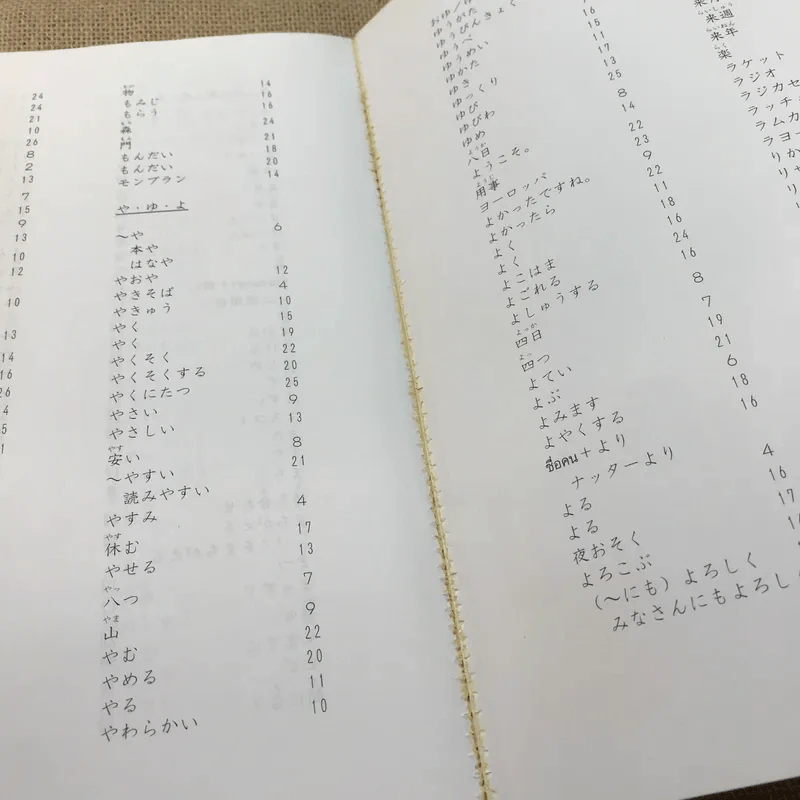 24
24
21
10
26
8
2
13
7
15
9
13
10
12
10
13
14
16
26
4
5
1
物 14
もみじ 16
もらう 16
森 24
門 21
もんだい 18
もんだい 20
モンブラン 14
や・ゆ・よ
〜や 6
本や
はなや
やおや 12
やきそば 4
やきゅう 10
やく 15
やく 19
やくそく 22
やくそくする 20
やくにたつ 25
やさい 9
やさしい 13
安い 8
〜やすい 21
読みやすい
やすみ 4
休む 17
やせる 13
八つ 7
山 9
やむ 22
やめる 20
やる 11
やわらかい 10
ゆうがた
ゆうびんきょく
ゆうべ
ゆうめい
ゆかた
ゆき
ゆっくり
ゆび
ゆびわ
ゆめ
八日
ようこそ。
用事
ヨーロッパ
よかったですね。
よかったら
よく
よく
よこはま
よごれる
よしゅうする
四日
四つ
よてい
よぶ
よみます
よやくする
ชื่อคน+より
ナッターより
よる
よる
夜おそく
よろこぶ
(〜にも) よろしく
みなさんにもよろし
16
15
11
17
13
25
8
14
22
23
9
22
11
18
16
24
16
8
7
19
21
6
18
16
4
16
17
来週
来年
楽
ラケット
ラジオ
ラジカセ
ラッチ
ラムカ
ラヨ
りか